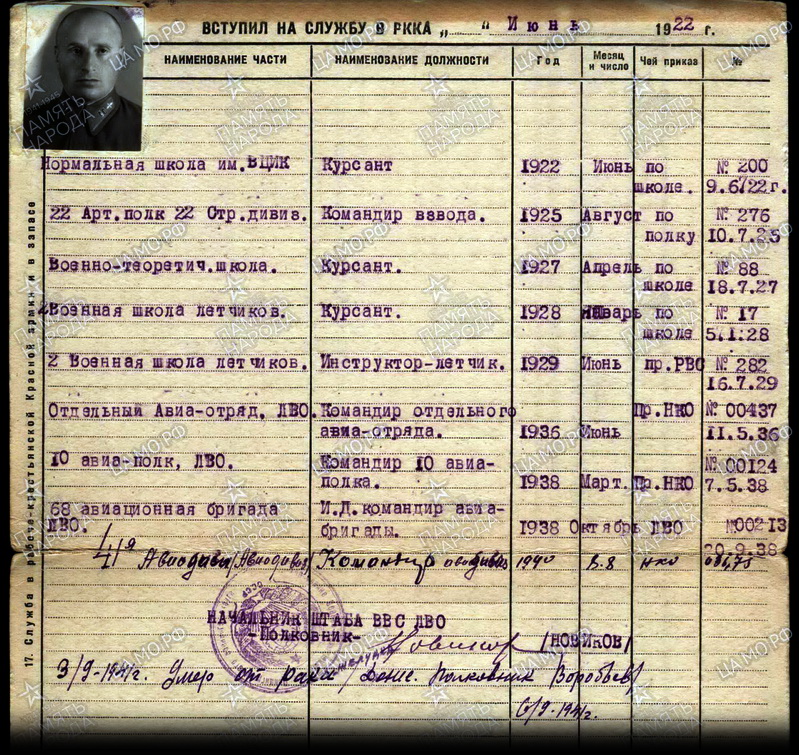 ВСТУПИЛ НА СЛУЖБУ В РККА „ “ Июнь 1922 г.
НАИМЕНОВАНИЕ ЧАСТИ НАИМЕНОВАНИЕ ДОЛЖНОСТИ Год Месяц и число Чей приказ №
Нормальная школа им.ВЦИК Курсант 1922 Июнь по № 200
школе. 9.6/22 г.
22 Арт.полк 22 Стр.дивиз. Командир взвода. 1925 Август по № 276
полку 10.7.25
Военно-теоретич.школа. Курсант. 1927 Апрель по № 88
школе 18.7.27
2Военная школа летчиков. Курсант. 1928 Январь по № 17
школе 5.1.28
2 Военная школа летчиков. Инструктор-летчик. 1929 Июнь пр.РВС № 282
16.7.29
Отдельный Авиа-отряд, ЛВО. Командир отдельного Пр.НКО № 00437
авиа-отряда. 1936 Июнь 11.5.36
10 авиа-полк, ЛВО. Командир 10 авиа- № 00124
полка. 1938 Март. Пр.НКО 7.5.38
68 авиационная бригада И.Д.командир авиа-
ЛВО. бригады. 1938 Октябрь ЛВО №00213
20.9.38
41я Авиодивизия Командир 1940 В.8 нко
НАЧАЛЬНИК ШТАБА ВВС ЛВО
-Полковник- /НОВИКОВ/
3/9-1941г. Умер от рака желудка /Донес. Полковник Воробьев/
6/9-1941г.
17. Служба в рабоче-крестьянской Красной армии и в запасе
ПАМЯТЬ НАРОДА
ЦАМО.РФ